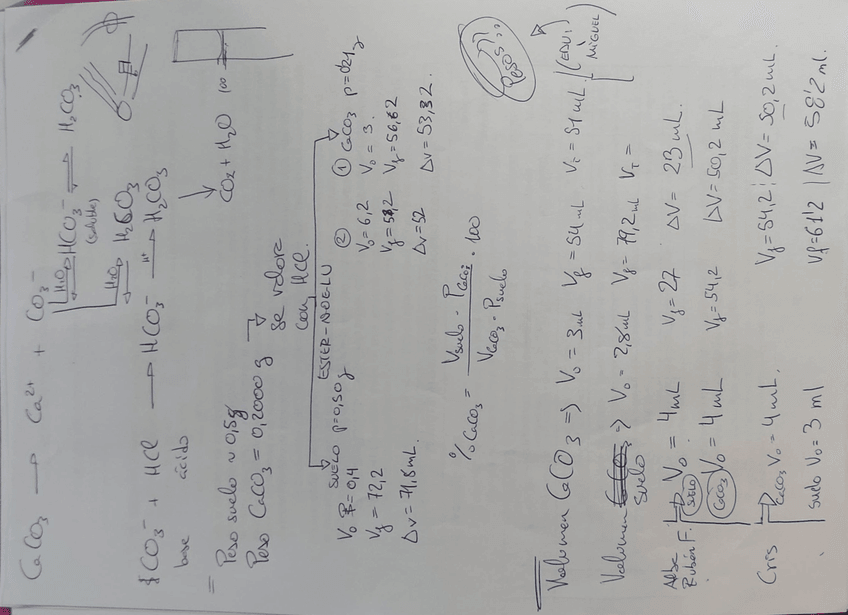 CaCO₃ → Ca²⁺ + CO₃⁻
H₂O HCO₃⁻ ⇌ H₂CO₃
(soluble)
H₂O H₂CO₃
CO₃⁻ + HCl → HCO₃⁻ → H₂CO₃
base ácido
CO₂ + H₂O
100
= Peso suelo ~ 0,5g
Peso CaCO₃ = 0,2000 g → se valora
con HCl.
ESTER-NOELU
SUELO p=0,50g
V₀ = 0,4
Vf = 72,2
ΔV = 71,8mL
②
V₀ = 6,2
Vf = 58,2
ΔV = 52
① CaCO₃ p=0,21g
V₀ = 3.
Vf = 56,82
ΔV = 53,82
% CaCO₃ = Vsuelo · PCaCO₃ / VCaCO₃ · Psuelo · 100
Pesos
Volumen CaCO₃ => V₀ = 3mL Vf = 54mL VT = 51mL (EDU,
MIGUEL)
Volumen suelo => V₀ = 2,8mL Vf = 79,2mL VT =
Alba
Rubén F.
SUELO V₀ = 4mL Vf = 27 ΔV = 23mL.
CaCO₃ V₀ = 4mL Vf = 54,2 ΔV = 50,2mL
Cris CaCO₃ V₀ = 4mL. Vf = 54,2 ¦ ΔV = 50,2mL.
suelo V₀ = 3 ml Vf = 61'2 | ΔV = 58'2 ml.